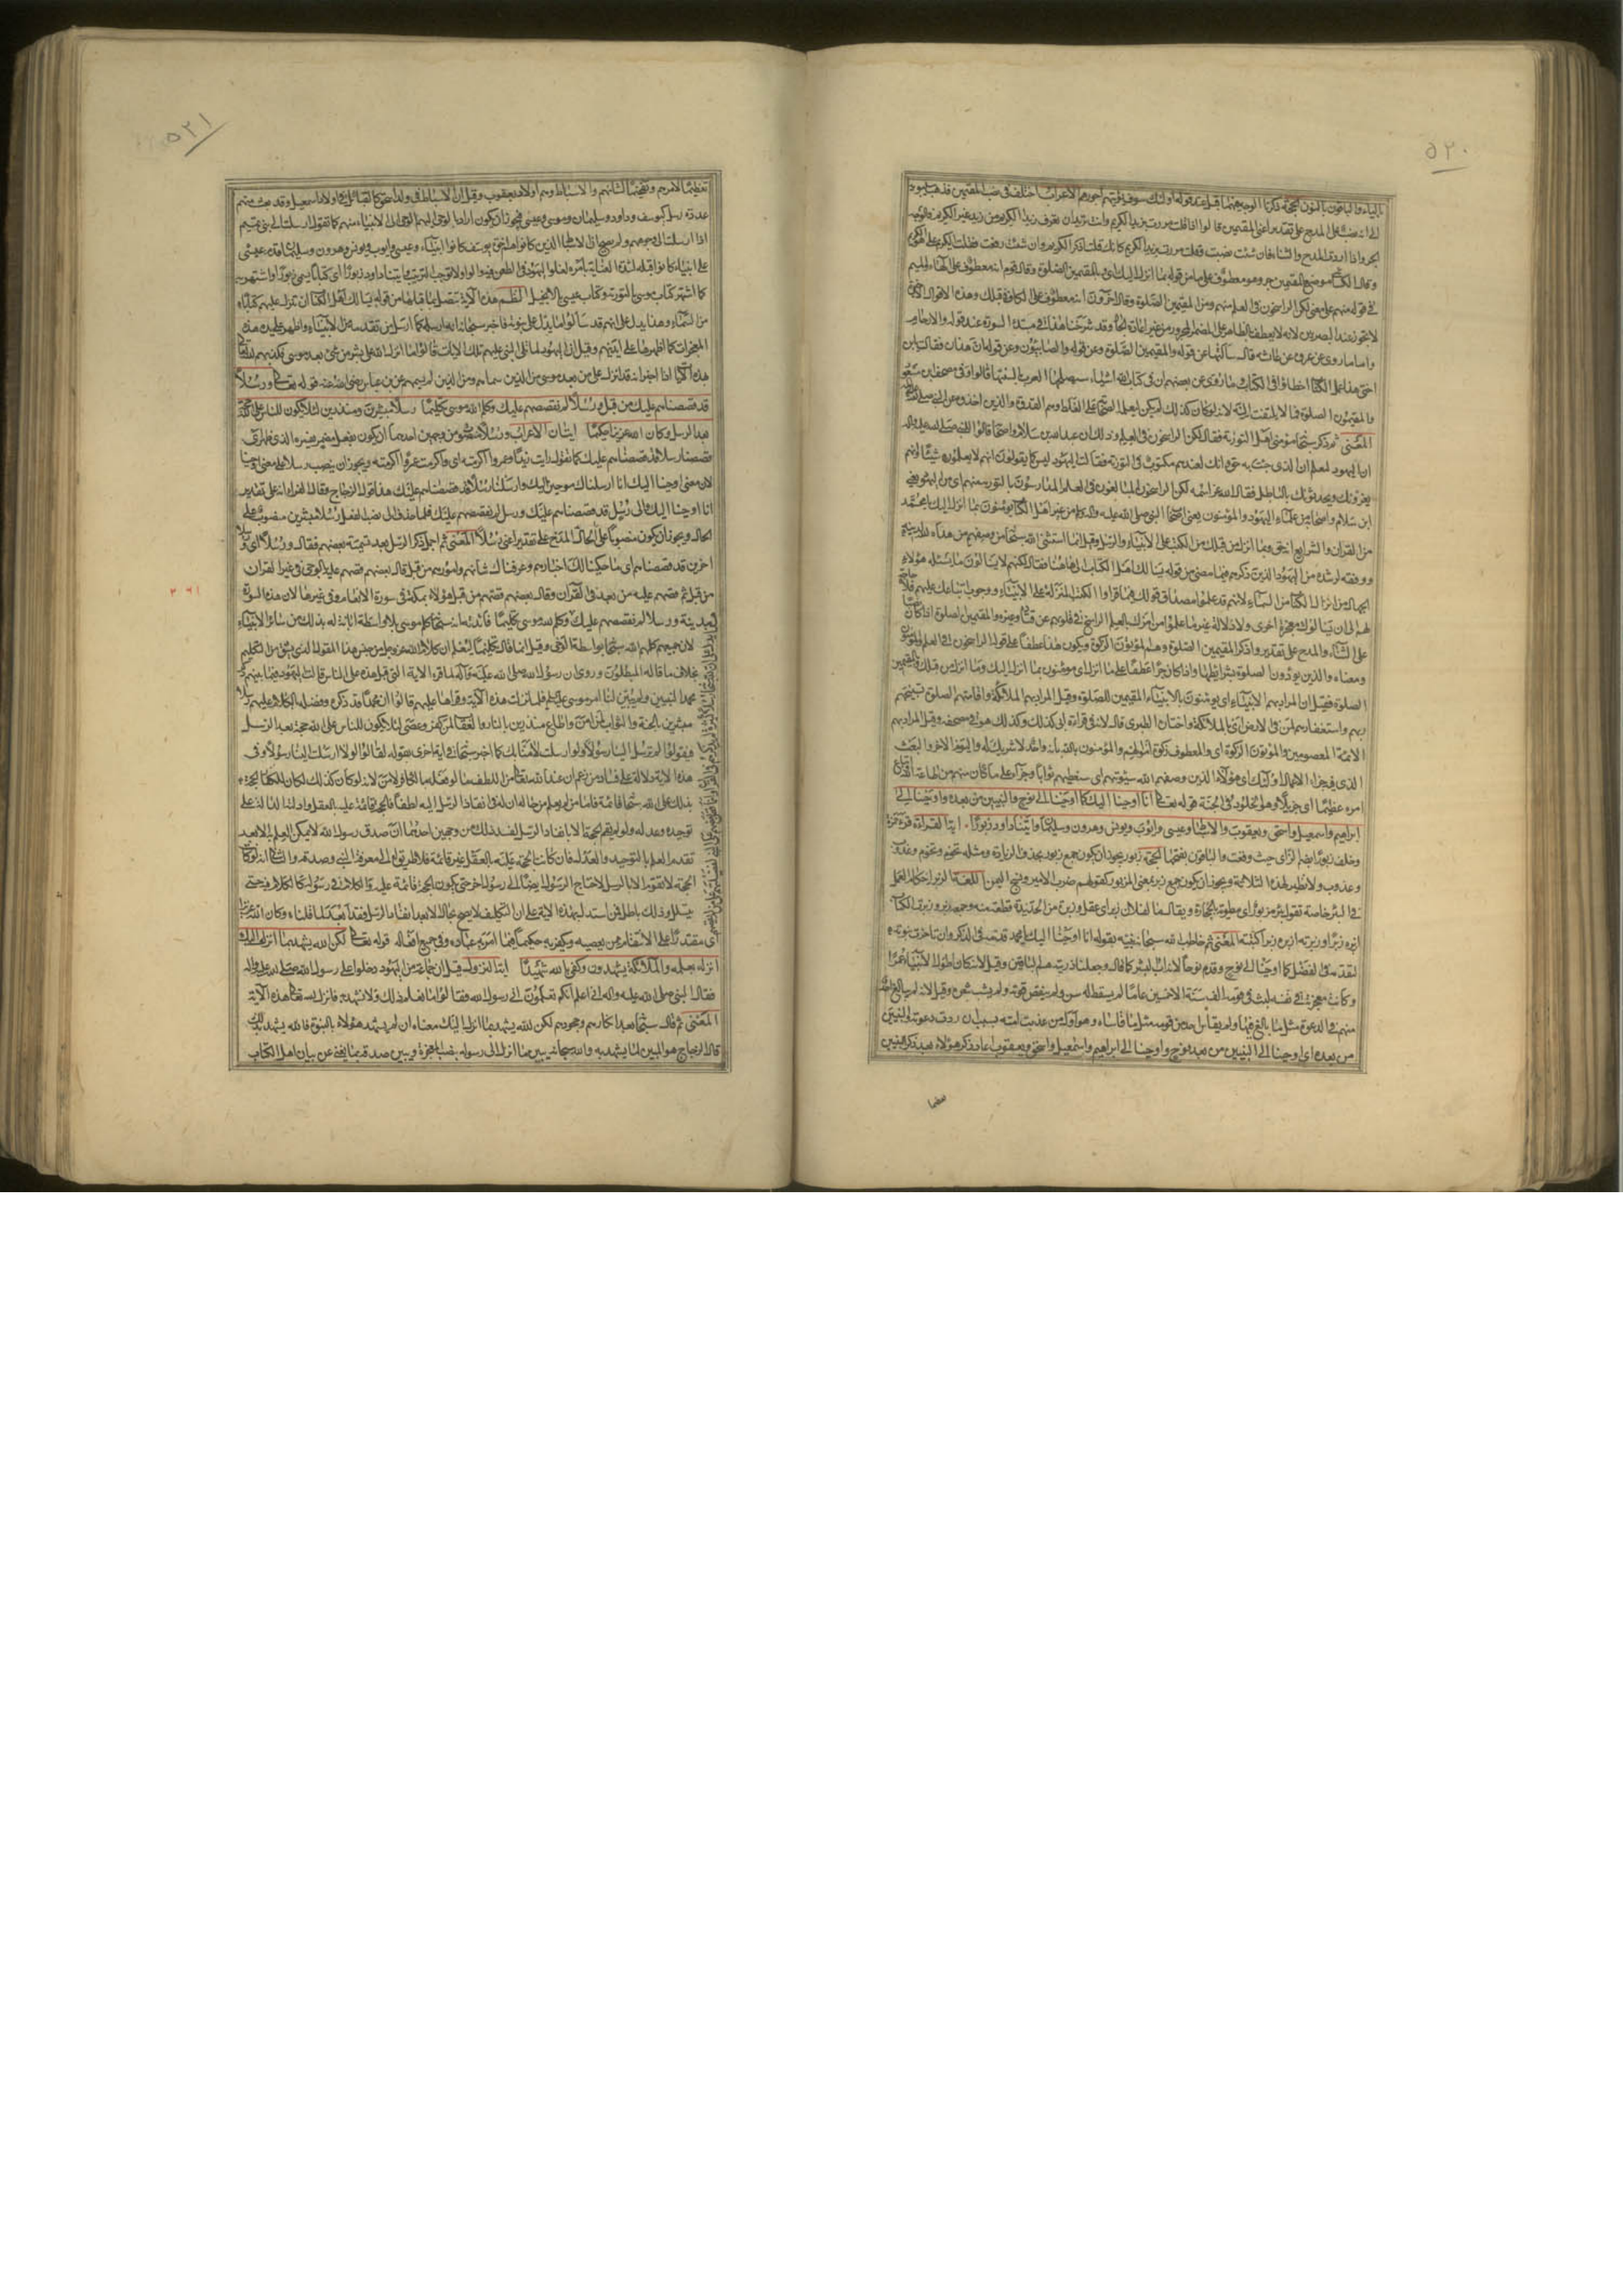 ٥٢٠
بالياء والباقون بالنون الحجة ذكرنا الوجه فيهما قبل عند قوله اولئك سوف نؤتيهم اجورهم الاعراب اختلف في نصب المقيمين فذهب سيبويه
الى انه نصب على المدح على تقدير اعني المقيمين قالوا اذا قلت مررت بزيد الكريم وانت تريد ان تعرف زيدا الكريم من زيد غير الكريم فالوجه
الجر واذا اردت المدح والثناء فان شئت نصبت وقلت مررت بزيد الكريم كانك قلت اذكر الكريم وان شئت رفعت فقلت الكريم على هو الكريم
وقال الكسائي موضع المقيمين جر وهو معطوف على ما من قوله بما انزل اليك اي وبالمقيمين الصلوة وقال قوم انه معطوف على الهاء والميم
في قوله منهم على معنى لكن الراسخون في العلم منهم ومن المقيمين الصلوة وقال آخرون انه معطوف على الكاف من قبلك وهذه الاقوال الاخيرة
لا تجوز عند البصريين لانه لا يعطف بالظاهر على المضمر المجرور من غير اعادة الجار وقد شرحنا هذا في مبتدء السورة عند قوله والارحام
واما ما روى عن عروة عن عائشة قال سألتها عن قوله والمقيمين الصلوة وعن قوله والصابئون وعن قوله ان هذان فقالت يا ابن
اختي هذا عمل الكتاب اخطاؤا في الكتاب وما روى عن بعضهم ان في كتاب الله اشياء ستصلحها العرب بالسنتها قالوا وفي مصحف ابن مسعود
والمقيمون الصلوة فمما لا يلتفت اليه لانه لو كان كذلك لم يكن ليعلمه الصحابة على الغلط وهم القدوة والذين اخذوه عن النبي صلى الله عليه وآله
المعنى ثم ذكر سبحانه مؤمني اهل التورية فقال لكن الراسخون في العلم وذلك ان عبد الله بن سلام واصحابه قالوا للنبي صلى الله عليه وآله
ان اليهود لتعلم ان الذي جئت به حق وانك لعندهم مكتوب في التورية فقالت اليهود ليس كما يقولون انهم لا يعلمون شيئا وانهم
يغرونك ويحدثونك بالباطل فقال الله عز اسمه لكن الراسخون الثابتون المبالغون في العلم المدارسون بالتورية منهم اي من اليهود يعني
ابن سلام واصحابه من علماء اليهود والمؤمنون يعني اصحاب النبي صلى الله عليه وآله من غير اهل الكتاب يؤمنون بما انزل اليك يا محمد
من القران والشرايع انه حق وبما انزل من قبلك من الكتب على الانبياء والرسل وقيل انما استثنى الله سبحانه من وصفهم ممن هداه الله لدينه
ووفقه لرشده من اليهود الذين ذكرهم فيما مضى من قوله يسألك اهل الكتاب الى هاهنا فقال لكنهم لا يسألونك ما يسئله هؤلاء
الجهال من انزال الكتاب من السماء لانهم قد علموا مصداق قولك بما قرأوا الكتب المنزلة على الانبياء ووجوب اتباعك عليهم فلا حاجة
لهم الى ان يسألوك معجزة اخرى ولا دلالة غير ما علموا من امرك بالعلم الراسخ في قلوبهم عن قتادة وغيره والمقيمين الصلوة اذا كان نصبا
على الثناء والمدح على تقدير واذكر المقيمين الصلوة وهم المؤتون الزكوة ويكون هذا عطفا على قوله الراسخون في العلم والمؤمنون
ومعناه والذين يؤدون الصلوة بشرائطها واذا كان جرا عطفا على ما انزل اي يؤمنون بما انزل اليك وما انزل من قبلك وبالمقيمين
الصلوة فقيل ان المراد بهم الانبياء اي يؤمنون بالانبياء المقيمين للصلوة وقيل المراد بهم الملائكة واقامتهم الصلوة تسبيحهم
ربهم واستغفارهم لمن في الارض اي بالملائكة واختاره الطبري قال لانه في قراءة ابي كذلك وكذلك هو في مصحفه وقيل المراد بهم
الائمة المعصومين والمؤتون الزكوة اي والمعطون زكوة اموالهم والمؤمنون بالله بانه واحد لا شريك له واليوم الاخر وبالبعث
الذي فيه جزاء الاعمال اولئك اي هؤلاء الذين وصفهم الله سنؤتيهم اي سنعطيهم ثوابا وجزاء على ما كان منهم من طاعة الله واتباع
امره عظيما اي جزيلا وهو الخلود في الجنة قوله تعالى انا اوحينا اليك كما اوحينا الى نوح والنبيين من بعده واوحينا الى
ابراهيم واسمعيل واسحق ويعقوب والاسباط وعيسى وايوب ويونس وهرون وسليمان وآتينا داود زبورا آية القراءة قرء حمزة
وخلف زبورا بضم الزاي حيث وقعت والباقون بفتحها الحجة زبور يجوز ان يكون جمع زبور بحذف الزيادة ومثله تخوم وتخوم وعذوب
وعذوب ولا نظير لهذه الثلاثة ويجوز ان يكون جمع زبر بمعنى المزبور كقولهم ضرب الامير ونسج اليمن اللغة الزبر احكام العمل
في البئر خاصة تقول بئر مزبورة اي مطوية بالحجارة ويقال ما لفلان زبر اي عقل وزبرة من الحديد قطعة منه وجمعه زبر وزبرت الكتاب
ازبره زبرا وزبرته ازبره زبرا كتبته المعنى ثم خاطب الله سبحانه نبيه بقوله انا اوحينا اليك يا محمد قدمه في الذكر وان تاخرت نبوته
لتقدمه في الفضل كما اوحينا الى نوح وقدم نوحا لانه اب البشر كما قال وجعلنا ذريته هم الباقين وقيل لانه كان اطول الانبياء عمرا
وكانت معجزته في نفسه لبث في قومه الف سنة الا خمسين عاما لم يسقط له سن ولم ينقص قوته ولم يشب شعره وقيل لانه لم يبالغ احد
منهم في الدعوة مثل ما بالغ فيها ولم يقاس احد من قومه مثل ما قاساه وهو اول من عذبت امته بسبب ان ردت دعوته والنبيين
من بعده اي اوحينا الى النبيين من بعد نوح واوحينا الى ابراهيم واسمعيل واسحق ويعقوب اعاد ذكر هؤلاء بعد ذكر النبيين
تعظيما
٥٢١
تعظيما لامرهم وتفخيما لشانهم والاسباط وهم اولاد يعقوب وقيل ان الاسباط في ولد اسحق كالقبائل في اولاد اسمعيل وقد بعث منهم
عدة رسل كيوسف وداود وسليمان وموسى وعيسى فيجوز ان يكون اراد بالوحي اليهم الوحي الى الانبياء منهم كما تقول ارسلت الى بني تميم
اذا ارسلت الى وجوههم ولم يصح ان الاسباط الذين كانوا اخوة يوسف كانوا انبياء وعيسى وايوب ويونس وهرون وسليمان قدم عيسى
على انبياء كانوا قبله لشدة العناية بامره لغلو اليهود في الطعن فيه والواو لا توجب الترتيب وآتينا داود زبورا اي كتابا يسمى زبورا واشتهر به
كما اشتهر كتاب موسى بالتورية وكتاب عيسى بالانجيل النظم هذه الآية تتصل بما قبلها من قوله يسألك اهل الكتاب ان تنزل عليهم كتابا
من السماء وهذا يدل على انهم قد سألوا ما يدل على نبوته فاخبر سبحانه انه ارسله كما ارسل من تقدمه من الانبياء واظهر على يده
المعجزات كما اظهرها على ايديهم وقيل ان اليهود لما تلى النبي عليهم تلك الايات قالوا ما انزل الله على بشر من شيء بعد موسى فكذبهم الله تعالى
بهذه الآيات اذا اخبر انه قد انزل على من بعد موسى من الذين سماهم ومن الذين لم يسمهم عن ابن عباس رضي الله عنه قوله تعالى ورسلا
قد قصصناهم عليك من قبل ورسلا لم نقصصهم عليك وكلم الله موسى تكليما رسلا مبشرين ومنذرين لئلا يكون للناس على الله حجة
بعد الرسل وكان الله عزيزا حكيما آيتان الاعراب ورسلا منصوب من وجهين احدهما ان يكون بفعل مضمر يفسره الذي ظهر اي
قصصنا رسلا قد قصصناهم عليك كما تقول رايت زيدا وعمروا اكرمته اي واكرمت عمروا اكرمته ويجوز ان ينصب رسلا على معنى اوحينا
لان معنى اوحينا اليك انا ارسلناك موحين اليك وارسلنا رسلا قد قصصناهم عليك هذا قول الزجاج وقال الفراء انه على تقدير
انا اوحينا اليك والى رسل قد قصصناهم عليك ورسل لم نقصصهم عليك فلما حذف الى نصب الفعل رسلا مبشرين منصوب على
الحال ويجوز ان يكون منصوبا على المدح على تقدير اعني رسلا المعنى ثم اجمل ذكر الرسل بعد تسمية بعضهم فقال ورسلا اي ورسلا
اخرين قد قصصناهم اي ما حكينا لك اخبارهم وعرفناك شانهم وامورهم من قبل قال بعضهم قصهم عليه بالوحي في غير القران
من قبل ثم قصهم عليه من بعد في القران وقال بعضهم قصهم من قبل هؤلاء بمكة في سورة الانعام وفي غيرها لان هذه السورة
مدينة ورسلا لم نقصصهم عليك وكلم الله موسى تكليما فائدته انه سبحانه كلم موسى بلا واسطة ابانة له بذلك من سائر الانبياء
لان جميعهم كلمهم الله سبحانه بواسطة الوحي وقيل انما قال تكليما ليعلم ان كلام الله عز وجل من جنس هذا المعقول الذي يشتق من التكليم
بخلاف ما قاله المبطلون وروى ان رسول الله صلى الله عليه وآله لما قرأ الاية التي قبل هذه على الناس قالت اليهود فيما بينهم ذكر
محمد النبيين ولم يبين لنا امر موسى فلما نزلت هذه الآية وقراها عليهم قالوا ان محمدا قد ذكره وفضله بالكلام عليهم رسلا
مبشرين بالجنة والثواب لمن آمن واطاع ومنذرين بالنار والعقاب لمن كفر وعصى لئلا يكون للناس على الله حجة بعد الرسل
فيقولوا لم ترسل الينا رسولا ولو ارسلت لآمنا بك كما اخبر سبحانه في اية اخرى بقوله لقالوا لولا ارسلت الينا رسولا وفي
هذه الاية دلالة على فساد من زعم ان عند الله تعالى من اللطف ما لو فعله بالكافر لآمن لانه لو كان كذلك لكان للكفار الحجة
بذلك على الله سبحانه قائمة فاما من لم يعلم من حاله ان له في انفاذ الرسل اليه لطفا فالحجة قائمة عليه بالعقل وادلته الدالة على
توحيده وعدله ولو لم يقم الحجة الا بانفاذ الرسل لفسد ذلك من وجهين احدهما ان صدق رسول الله لا يمكن العلم به الا بعد
تقدم العلم بالتوحيد والعدل فان كانت الحجة عليه بالعقل غير قائمة فلا طريق له الى معرفة النبي وصدقه والثاني انه لو كانت
الحجة لا تقوم الا بالرسل لاحتاج الرسول ايضا الى رسول اخر حتى يكون الحجة قائمة عليه والكلام في رسوله كالكلام فيه حتى
يتسلسل وذلك باطل فمن استدل بهذه الاية على ان التكليف لا يصح بحال الا بعد انفاذ الرسل فقد ابعد لما قلناه وكان الله عزيزا
اي مقتدرا على الانتقام ممن يعصيه ويكفر به حكيما فيما امر به عباده وفي جميع افعاله قوله تعالى لكن الله يشهد بما انزل اليك
انزله بعلمه والملائكة يشهدون وكفى بالله شهيدا آية النزول قيل ان جماعة من اليهود دخلوا على رسول الله صلى الله عليه وآله
فقال النبي صلى الله عليه وآله اني اعلم انكم تعلمون اني رسول الله فقالوا ما نعلم ذلك ولا نشهد به فانزل الله تعالى هذه الآية
المعنى ثم قال سبحانه بعد انكارهم وجحودهم لكن الله يشهد بما انزل اليك معناه ان لم يشهد هؤلاء بالنبوة فالله يشهد بذلك
قال الزجاج هو المبين لما يشهد به والله سبحانه يبين ما انزل الى رسوله بنصب المعجزة ويبين صدقه بما يغني عن بيان اهل الكتاب